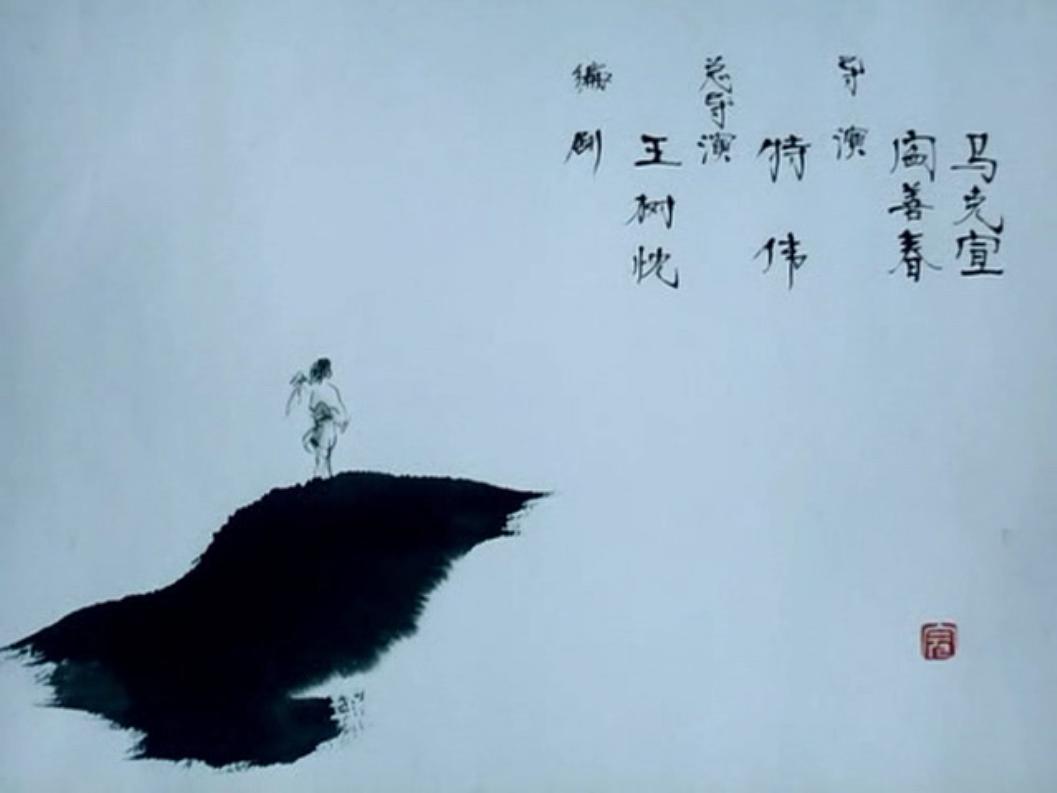 编剧
王树忱
总导演
特伟
导演
阎善春
马克宣